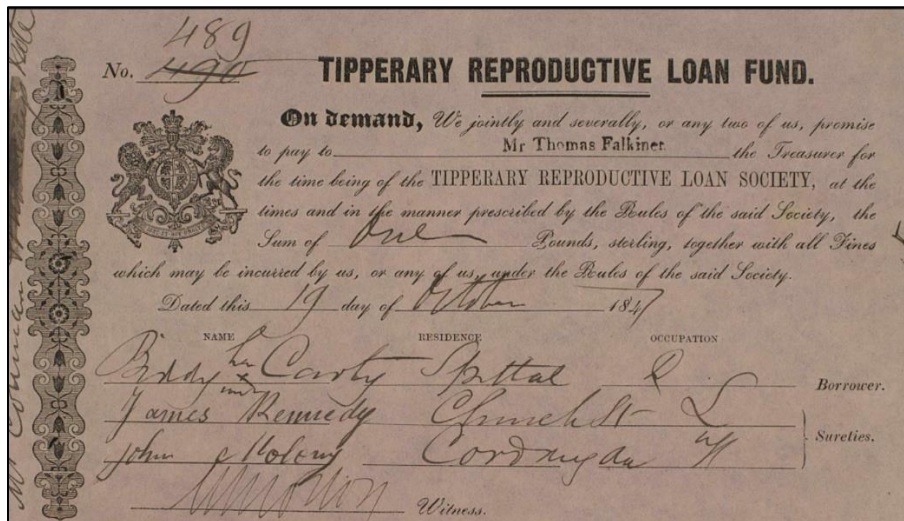 489
No. 490
TIPPERARY REPRODUCTIVE LOAN FUND.
On demand, We jointly and severally, or any two of us, promise
to pay to Mr Thomas Falkiner the Treasurer for
the time being of the TIPPERARY REPRODUCTIVE LOAN SOCIETY, at the
times and in the manner prescribed by the Rules of the said Society, the
Sum of One Pounds, sterling, together with all Fines
which may be incurred by us, or any of us, under the Rules of the said Society.
Dated this 19 day of October 1847
NAME RESIDENCE OCCUPATION
Biddy her x mark Carty Spittal Borrower.
James Kennedy Church St L
John Sureties.
Witness.